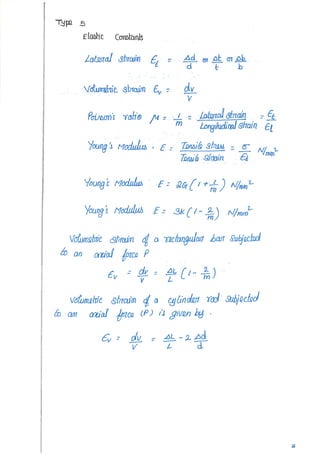 Type 5
Elastic Constants
Lateral strain Et = Δd/d or Δt/t or Δb/b
Volumetric strain Ev = dv/V
Poisson's ratio μ = 1/m = Lateral strain / Longitudinal strain = Et/El
Young's Modulus . E = Tensile stress / Tensile strain = σ/El N/mm²
Young's Modulus E = 2G (1 + 1/m) N/mm²
Young's Modulus E = 3K (1 - 2/m) N/mm²
Volumetric strain of a rectangular bar Subjected
to an axial force P
Ev = dv/V = ΔL/L (1 - 2/m)
Volumetric strain of a cylinder rod subjected
to an axial force (P) is given by .
Ev = dv/V = ΔL/L - 2 Δd/d